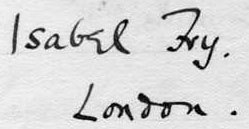 Isabel Fry.
London.